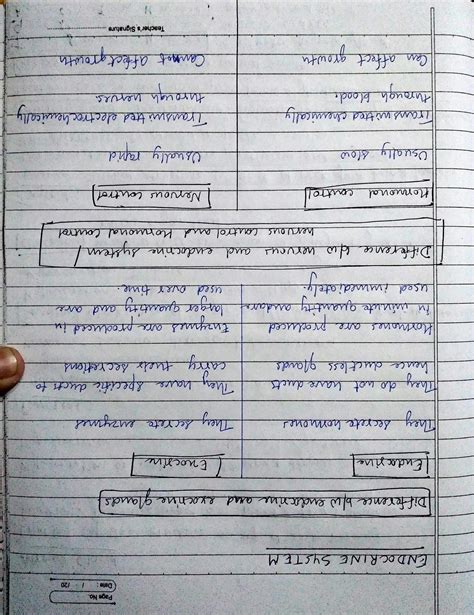 Page No.
Date / /20
ENDOCRINE SYSTEM
Difference b/w endocrine and exocrine glands
Endocrine Exocrine
They secrete hormones They secrete enzymes
They do not have ducts They have specific ducts to
hence ductless glands carry their secretions
Hormones are produced Enzymes are produced in
in minute quantity and are larger quantity and are
used immediately. used over time.
Difference b/w nervous and endocrine system /
nervous control and Hormonal control
Hormonal control Nervous control
Usually slow Usually rapid
Transmitted chemically Transmitted electrochemically
through blood. through nerves
Can affect growth Cannot affect growth
Teacher's Signature